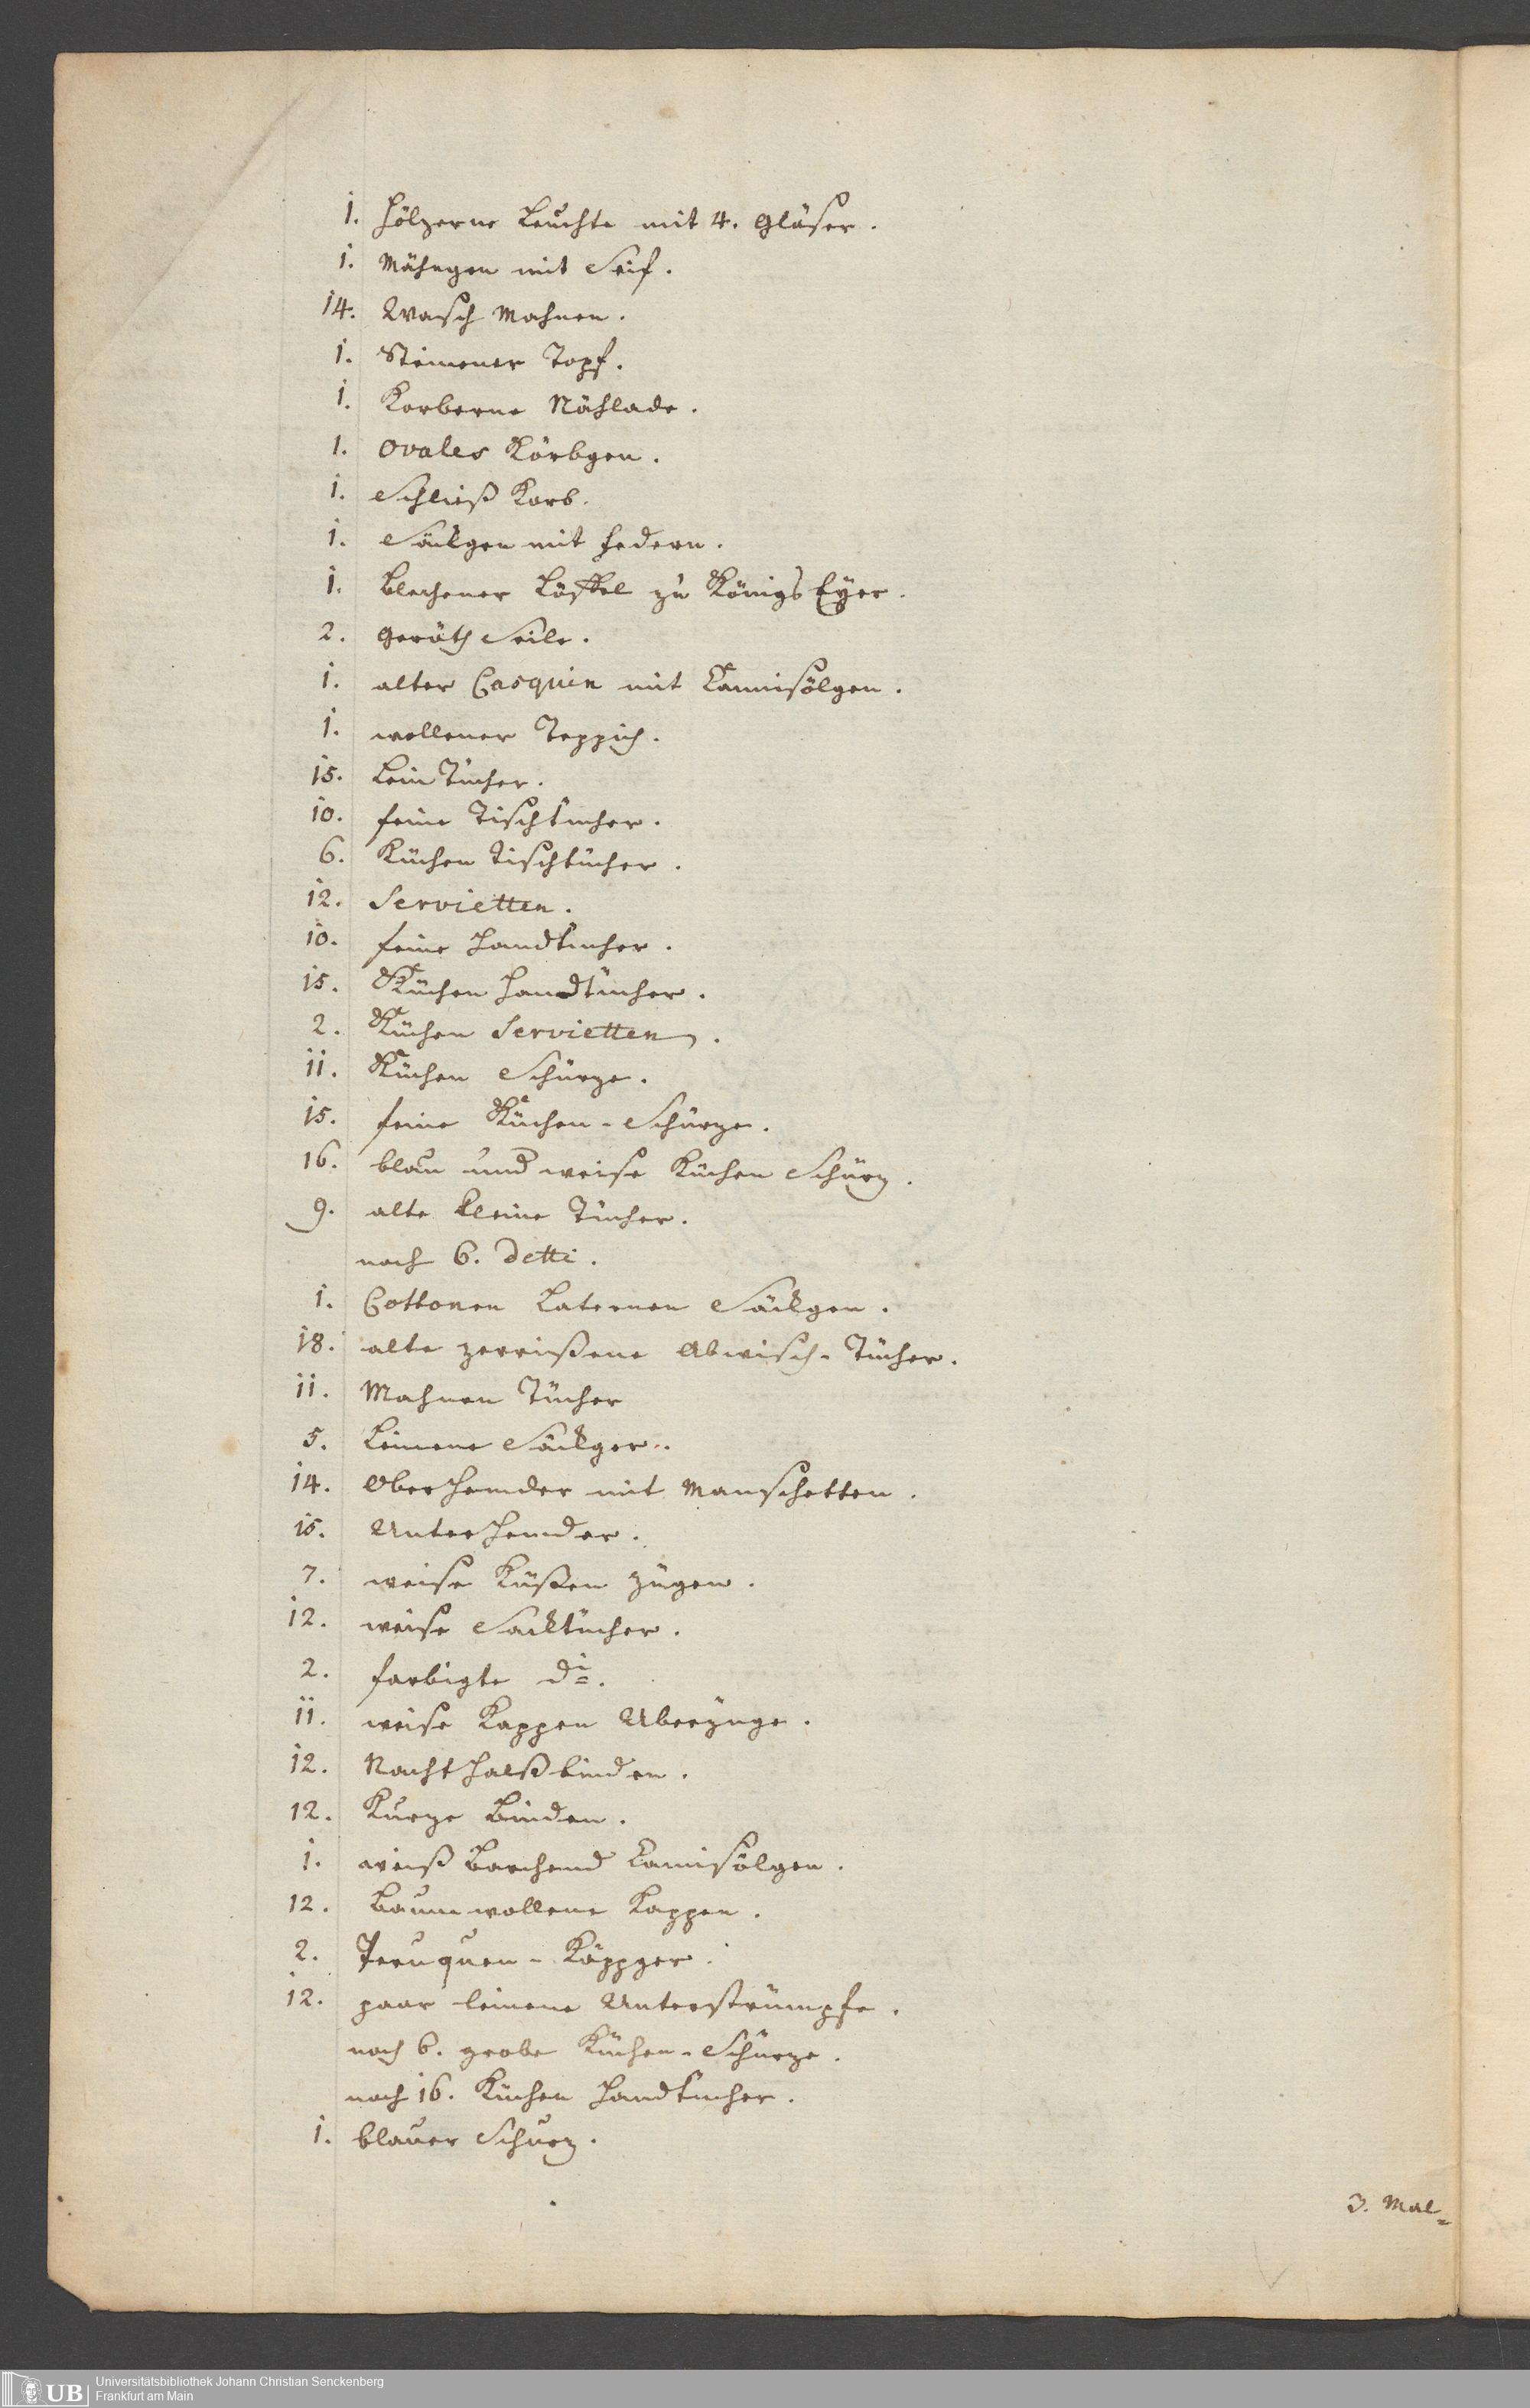 1. Hölzerne Leuchte mit 4. Gläser.
1. Mähngen mit Seif.
14. Wasch Mahnen.
1. Steinener Topf.
1. Korberne Nählade.
1. Ovales Körbgen.
1. Schließ Korb.
1. Säckgen mit Federn.
1. Blechener Löffel zu Königs Eyer.
2. Geräth Seile.
1. alter Casquin mit Cammisölgen.
1. wollener Teppich.
15. Lein Tücher.
10. feine Tischtücher.
6. Küchen Tischtücher.
12. Servietten.
10. feine Handtücher.
15. Küchen Handtücher.
2. Küchen Servietten.
11. Küchen Schürze.
15. feine Küchen-Schürze.
16. blau und weise Küchen Schürz.
9. alte kleine Tücher.
noch 6. detti.
1. Cottonen Laternen Säckgen.
18. alte zerrißene Abwisch-Tücher.
11. Mahnen Tücher
5. Leinene Säckger.
14. Oberhemder mit Manschetten.
15. Unterhemder.
7. weise Küßen Zügen.
12. weise Sacktücher.
2. farbigte do.
11. weise Kappen Uberzüge.
12. Nacht Halßbinden.
12. Kurze Binden.
1. weiß Barchend Camisölgen.
12. Baumwollene Kappen.
2. Peruquen-Käppger.
12. paar leinene Unterstrümpfe.
noch 6. grobe Küchen-Schürze.
noch 16. Küchen Handtücher.
1. blauer Schurz.
3. Mal=
UB Universitätsbibliothek Johann Christian Senckenberg
Frankfurt am Main